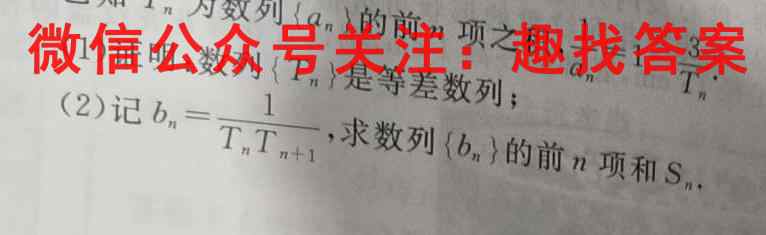 T_n 为数列{a_n}的前 n 项之
微信公众号关注：趣找答案
(1)证明:数列{T_n}是等差数列；
(2)记 b_n = \frac{1}{T_nT_{n+1}},求数列{b_n}的前 n 项和S_n.